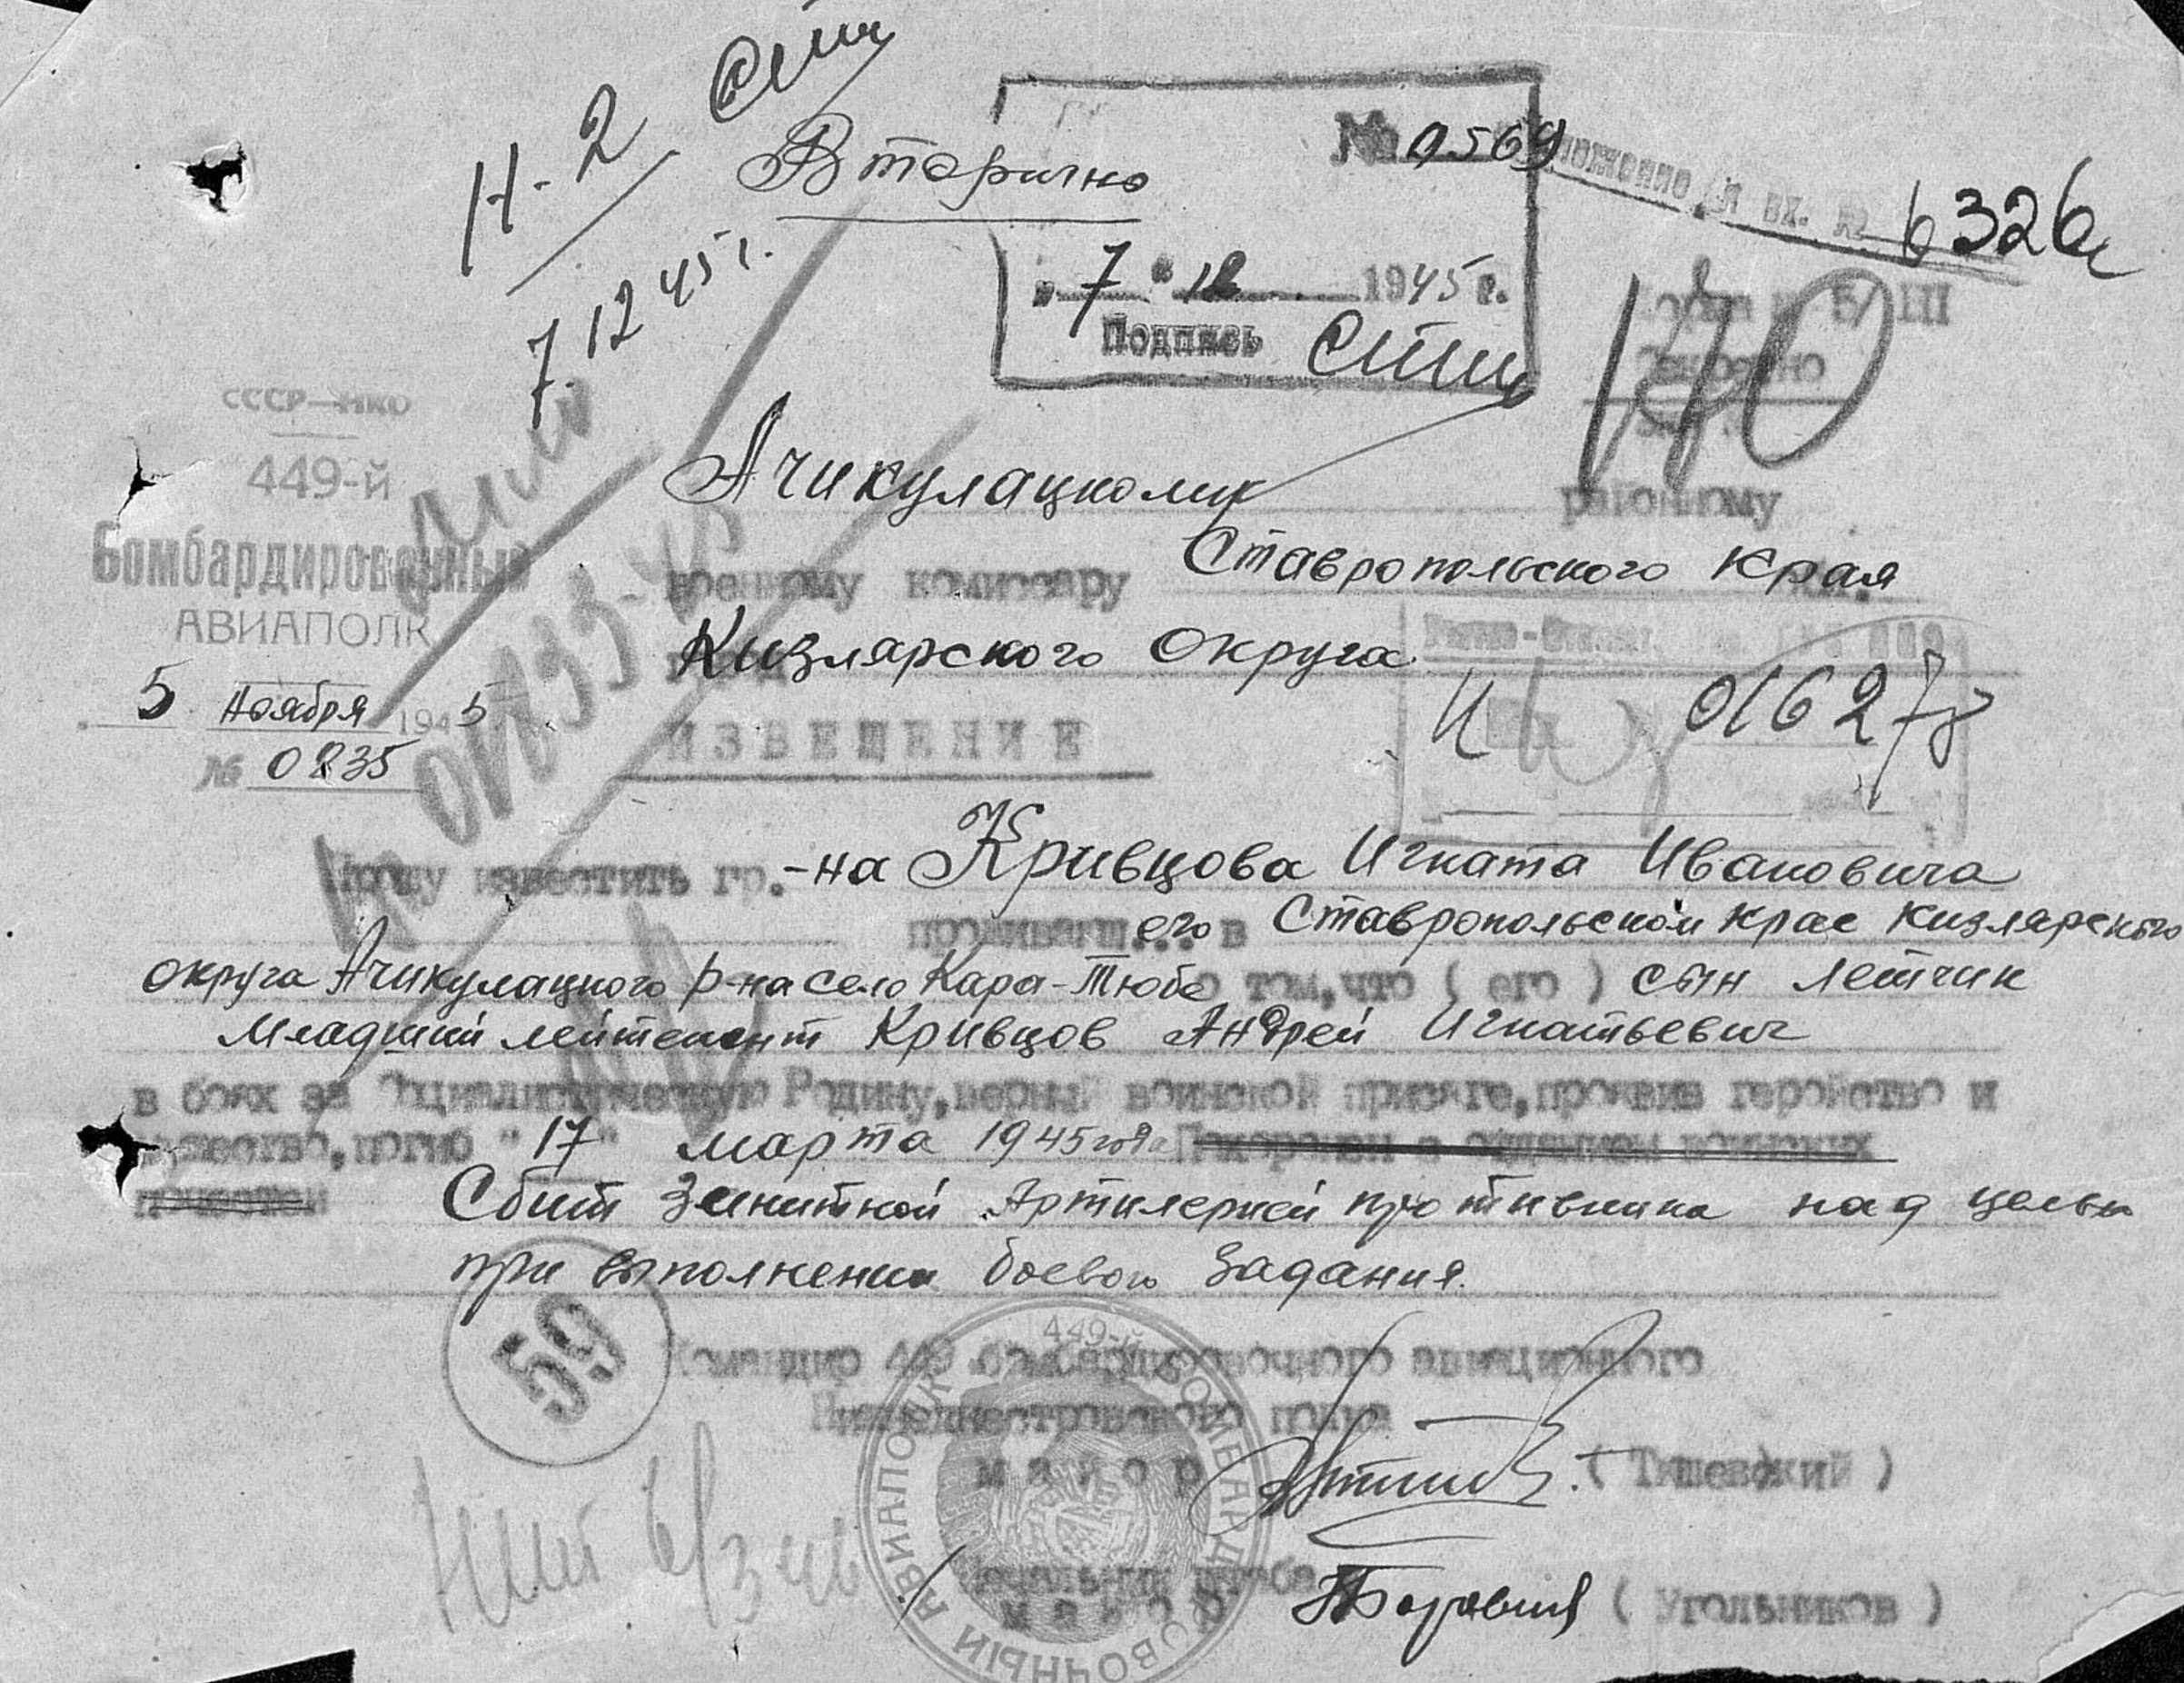 Н-2
Вторично
№ 0569
7. 12 45 г.
"7" 12 1945 г.
Подпись
вх. № 6326
170
СССР—НКО
449-й
Бомбардировочный
АВИАПОЛК
5 Ноября 1945
№ 0235
Ачикулацкому районному
военному комиссару Ставропольского Края
Кизлярского Округа
ИЗВЕЩЕНИЕ
01627
Прошу известить гр.-на Кривцова Игната Ивановича
проживающ...его в Ставропольском крае Кизлярского
округа Ачикулацкого р-на село Кара-Тюбе о том, что ( его ) сын летчик
Младший лейтенант Кривцов Андрей Игнатьевич
в боях за Социалистическую Родину, верный воинской присяге, проявив геройство и
мужество, погиб "17" марта 1945 года Похоронен с отданием воинских
почестей Сбит Зенитной Артилерией противника над целью
при выполнении боевого Задания.
59
Командир 449 бомбардировочного авиационного
Нижнеднестровского полка
майор (Тишевский)
Начальник штаба
майор (Угольников)
449-й БОМБАРДИРОВОЧНЫЙ АВИАПОЛК